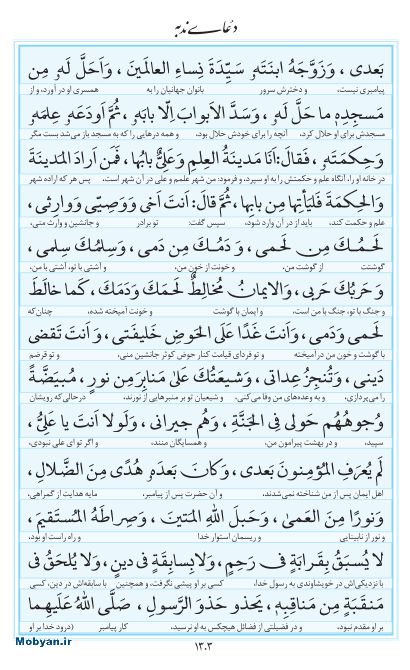 دعای ندبه
بَعدی ، وَزَوَّجَهُ ابنَتَهُ سَیِّدَةَ نِساءِ العالَمینَ ، وَاَحَلَّ لَهُ مِن
پیامبری نیست، و دخترش سرور بانوان جهانیان را به همسری او درآورد، و از
مَسجِدِهِ ما حَلَّ لَهُ ، وَسَدَّ الاَبوابَ اِلّا بابَهُ ، ثُمَّ اَودَعَهُ عِلمَهُ
مسجدش برای او حلال کرد، آنچه را برای خودش حلال بود، و همه درهایی را که به مسجد باز می‌شد بست مگر
وَحِکمَتَهُ ، فَقالَ: اَنَا مَدینَةُ العِلمِ وَعَلِیٌّ بابُها، فَمَن اَرادَ المَدینَةَ
در خانه او را، آنگاه علم و حکمتش را به او سپرد، و فرمود: من شهر علمم و علی در آن شهر است، پس هر که اراده شهر
وَالحِکمَةَ فَلیَأتِها مِن بابِها ، ثُمَّ قالَ: اَنتَ اَخی وَوَصِیّی وَوارِثی ،
علم و حکمت کند، باید از در آن وارد شود، سپس گفت: تو برادر و جانشین و وارث منی،
لَحمُکَ مِن لَحمی ، وَ دَمُکَ مِن دَمی ، وَسِلمُکَ سِلمی ،
گوشتت از گوشت من، و خونت از خون من، و آشتی با تو، آشتی با من،
وَ حَربُکَ حَربی ، وَالایمانُ مُخالِطٌ لَحمَکَ وَدَمَکَ ، کَما خالَطَ
و جنگ با تو، جنگ با من است، و ایمان با گوشت و خونت آمیخته شده، چنان‌که
لَحمی وَدَمی ، وَاَنتَ غَدًا عَلَی الحَوضِ خَلیفَتی ، وَ اَنتَ تَقضی
با گوشت و خون من درآمیخته و تو فردای قیامت کنار حوض کوثر جانشین منی، و تو قرضم
دَینی ، وَتُنجِزُ عِداتی ، وَشیعَتُکَ عَلی مَنابِرَ مِن نورٍ ، مُبیَضَّةً
را می‌پردازی، و به وعده‌های من وفا می‌کنی، و شیعیان تو بر منبرهایی از نورند، درحالی‌که رویشان
وُجوهُهُم حَولی فِی الجَنَّةِ ، وَهُم جیرانی ، وَلَولا اَنتَ یا عَلِیُّ ،
سپید، و در بهشت پیرامون من، و همسایگان منند، و اگر تو ای علی نبودی،
لَم یُعرَفِ المُؤمِنونَ بَعدی ، وَکانَ بَعدَهُ هُدًی مِنَ الضَّلالِ ،
اهل ایمان پس از من شناخته نمی‌شدند، و آن حضرت پس از پیامبر، مایه هدایت از گمراهی،
وَنورًا مِنَ العَمی ، وَحَبلَ اللهِ المَتینَ ، وَصِراطَهُ المُستَقیمَ ،
و نور از نابینایی و ریسمان استوار خدا و راه راست او بود.
لا یُسبَقُ بِقَرابَةٍ فی رَحِمٍ ، وَلابِسابِقَةٍ فی دینٍ ، وَلا یُلحَقُ فی
با نزدیکی‌اش در خویشاوندی به رسول خدا، کسی بر او پیشی نگرفت، و همچنین با سابقه‌اش در دین، کسی
مَنقَبَةٍ مِن مَناقِبِهِ ، یَحذو حَذوَ الرَّسولِ ، صَلَّی اللهُ عَلَیهِما
بر او مقدم نبود، و در فضیلتی از فضائل هیچکس به او نرسید، کار پیامبر (درود خدا بر او
Mobyan.ir
۱۳۰۳